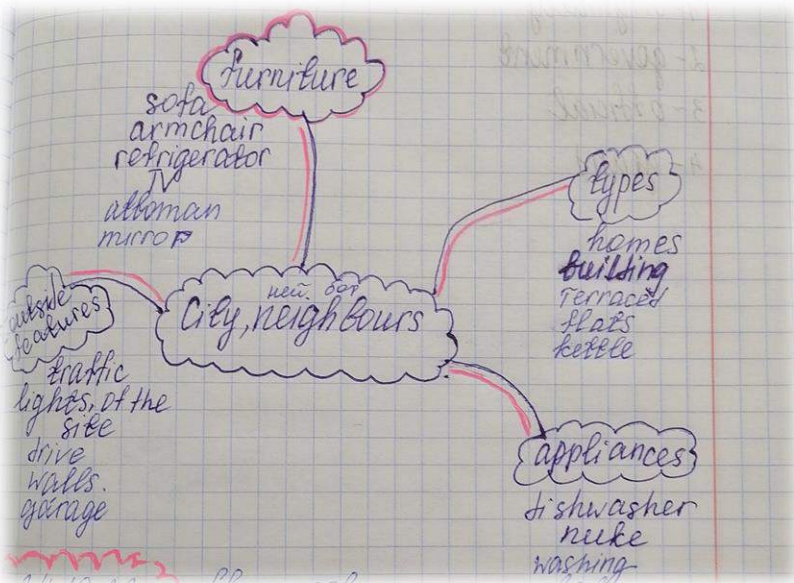 furniture
sofa
armchair
refrigerator
TV
attoman
mirror
types
homes
building
Terraced
flats
kettle
ней. бор
City, neighbours
outside
features
traffic
lights, of the
site
drive
walls.
garage
appliances
dishwasher
nuke
washing